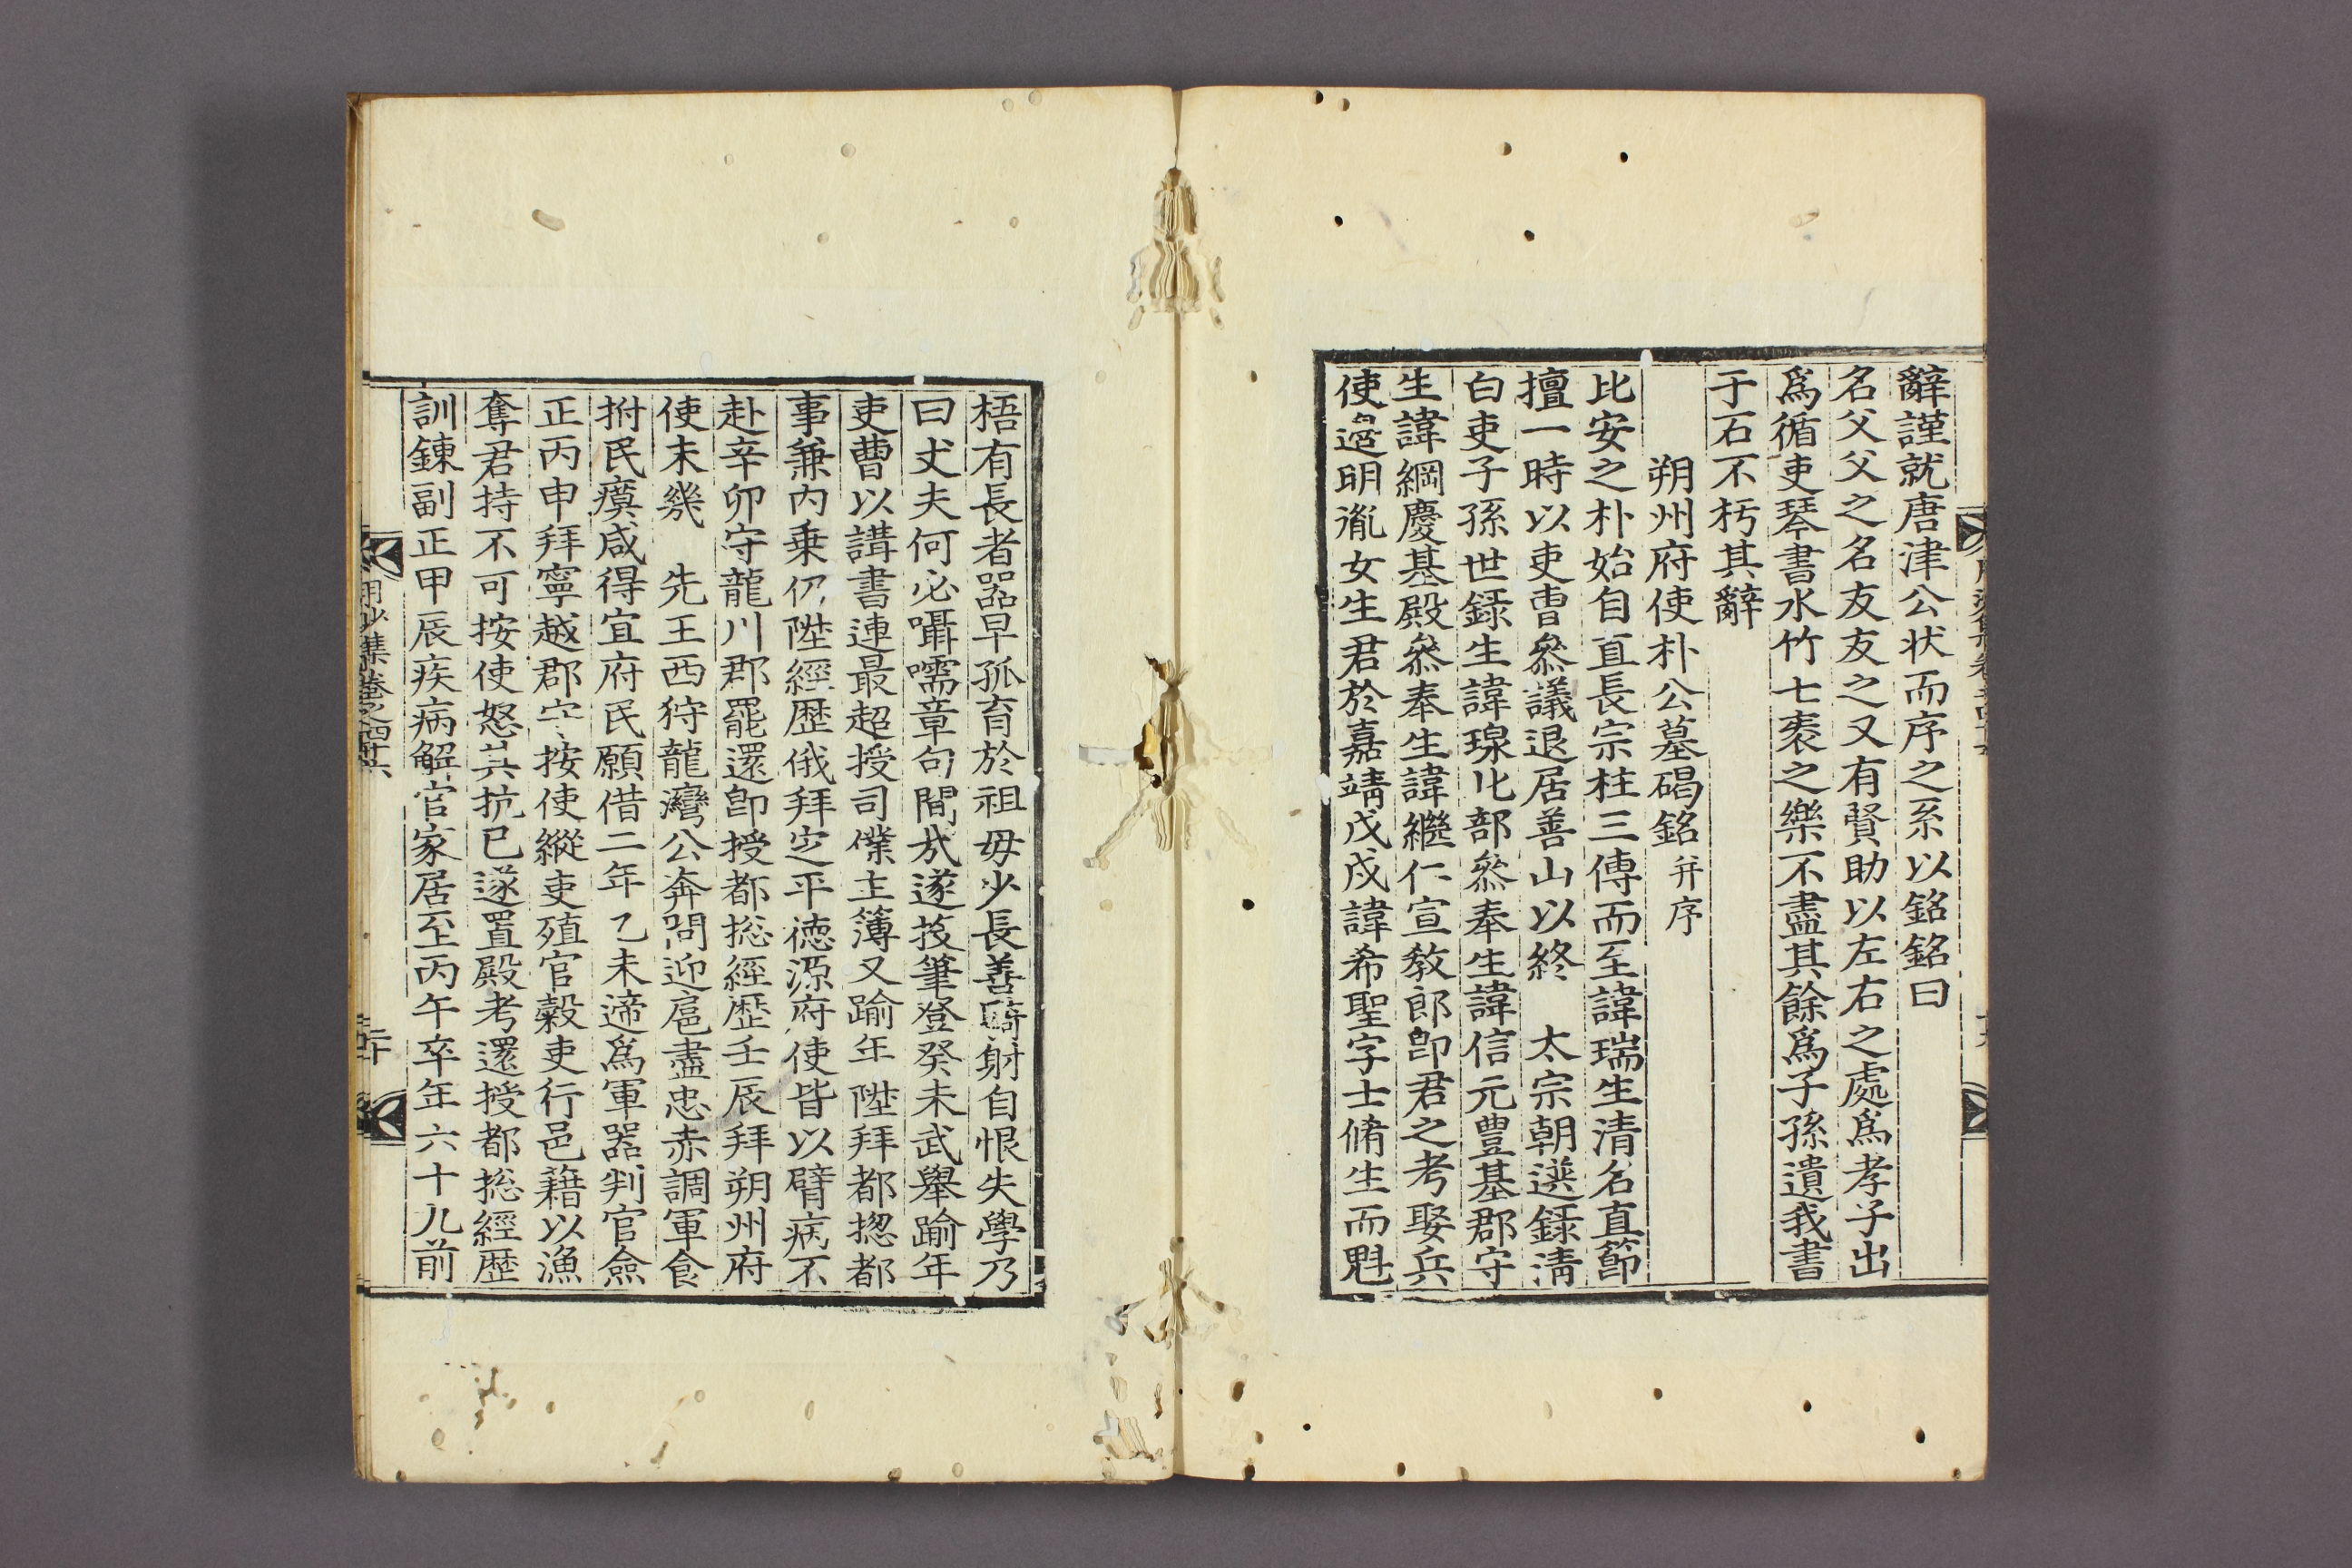 辭謹就唐津公状而序之系以銘銘曰
名父父之名友友之又有賢助以左右之處爲孝子出
爲循吏琴書水竹七袠之樂不盡其餘爲子孫遺我書
于石不朽其辭
朔州府使朴公墓碣銘并序
比安之朴始自直長宗柱三傳而至諱瑞生清名直節
擅一時以吏曺叅議退居善山以終 太宗朝選錄清
白吏子孫世録生諱瑔化部叅奉生諱信元豊基郡守
生諱綱慶基殿叅奉生諱繼仁宣敎郎卽君之考娶兵
使明胤女生君於嘉靖戊戌諱希聖字士脩生而魁
梧有長者器早孤育於祖毋少長善騎射自恨失學乃
曰丈夫何必囁嚅章句間㦲遂投筆登癸未武舉踰年
吏曹以講書連最超授司僕主簿又踰年陞拜都摠都
事兼内乗仍陞經歷俄拜定平德源府使皆以臂病不
赴辛卯守龍川郡罷還卽授都摠經歷壬辰拜朔州府
使未幾 先王西狩龍灣公奔問迎扈盡忠赤調軍食
拊民瘼咸得宜府民願借二年乙未遆爲軍器判官僉
正丙申拜寧越郡守按使縱吏殖官糓吏行邑藉以漁
奪君持不可按使怒其抗已遂置殿考還授都摠經歷
訓鍊副正甲辰疾病解官家居至丙午卒年六十九前
月沙集卷之四十六
二十